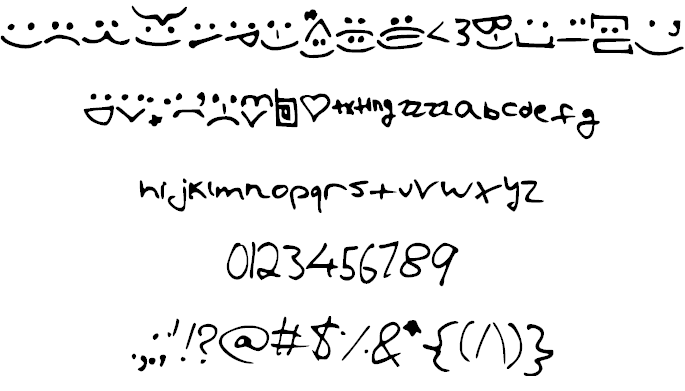 <3
txting zzzz a b c d e f g
h i j k l m n o p q r s t u v w x y z
0 1 2 3 4 5 6 7 8 9
. , ; : , ' ! ? @ # $ % & * { ( / \ ) }